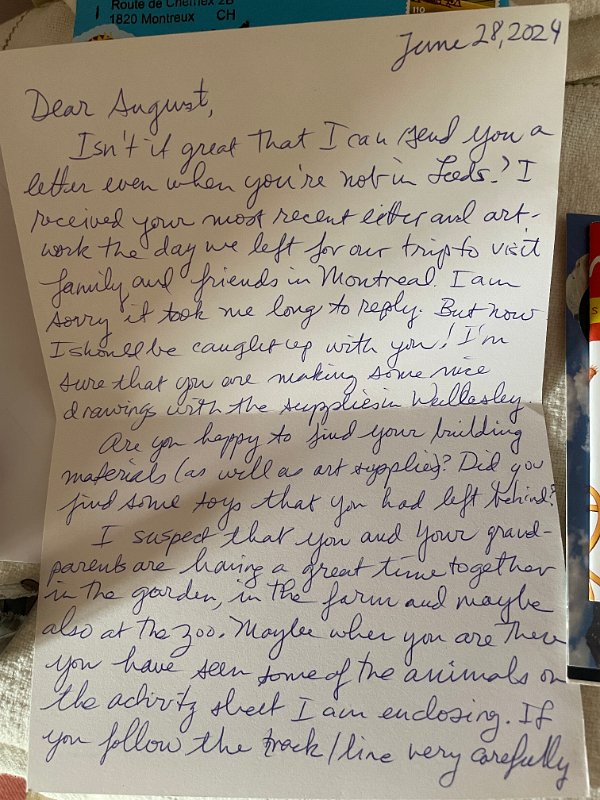 Route de Chernex 2B
1820 Montreux CH
June 28, 2024
Dear August,
Isn't it great that I can send you a
letter even when you're not in Leeds? I
received your most recent letter and art-
work the day we left for our trip to visit
family and friends in Montreal. I am
sorry it took me long to reply. But now
I should be caught up with you! I'm
sure that you are making some nice
drawings with the supplies in Wellesley.
Are you happy to find your building
materials (as well as art supplies)? Did you
find some toys that you had left behind?
I suspect that you and your grand-
parents are having a great time together
in the garden, in the farm and maybe
also at the zoo. Maybe when you are there
you have seen some of the animals on
the activity sheet I am enclosing. If
you follow the track/line very carefully